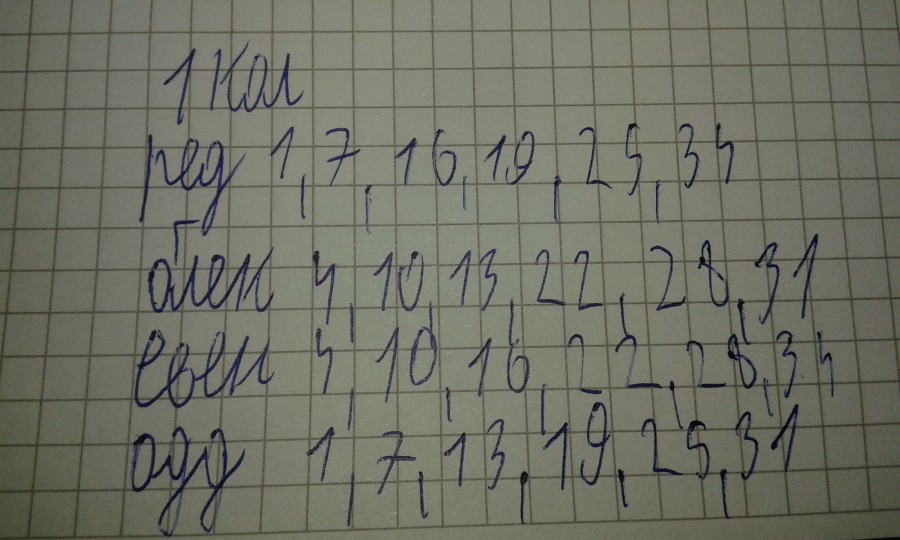 1 кол
ред 1, 7, 16, 19, 25, 34
блек 4, 10, 13, 22, 28, 31
евен 4, 10, 16, 22, 28, 34
одд 1, 7, 13, 19, 25, 31